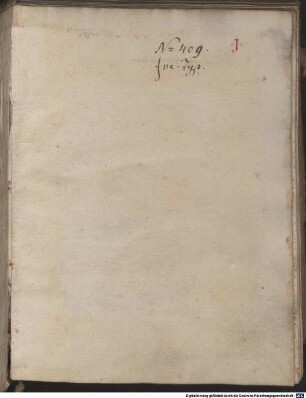 N= 409.
I
Digitalisierung gefördert durch die Deutsche Forschungsgemeinschaft